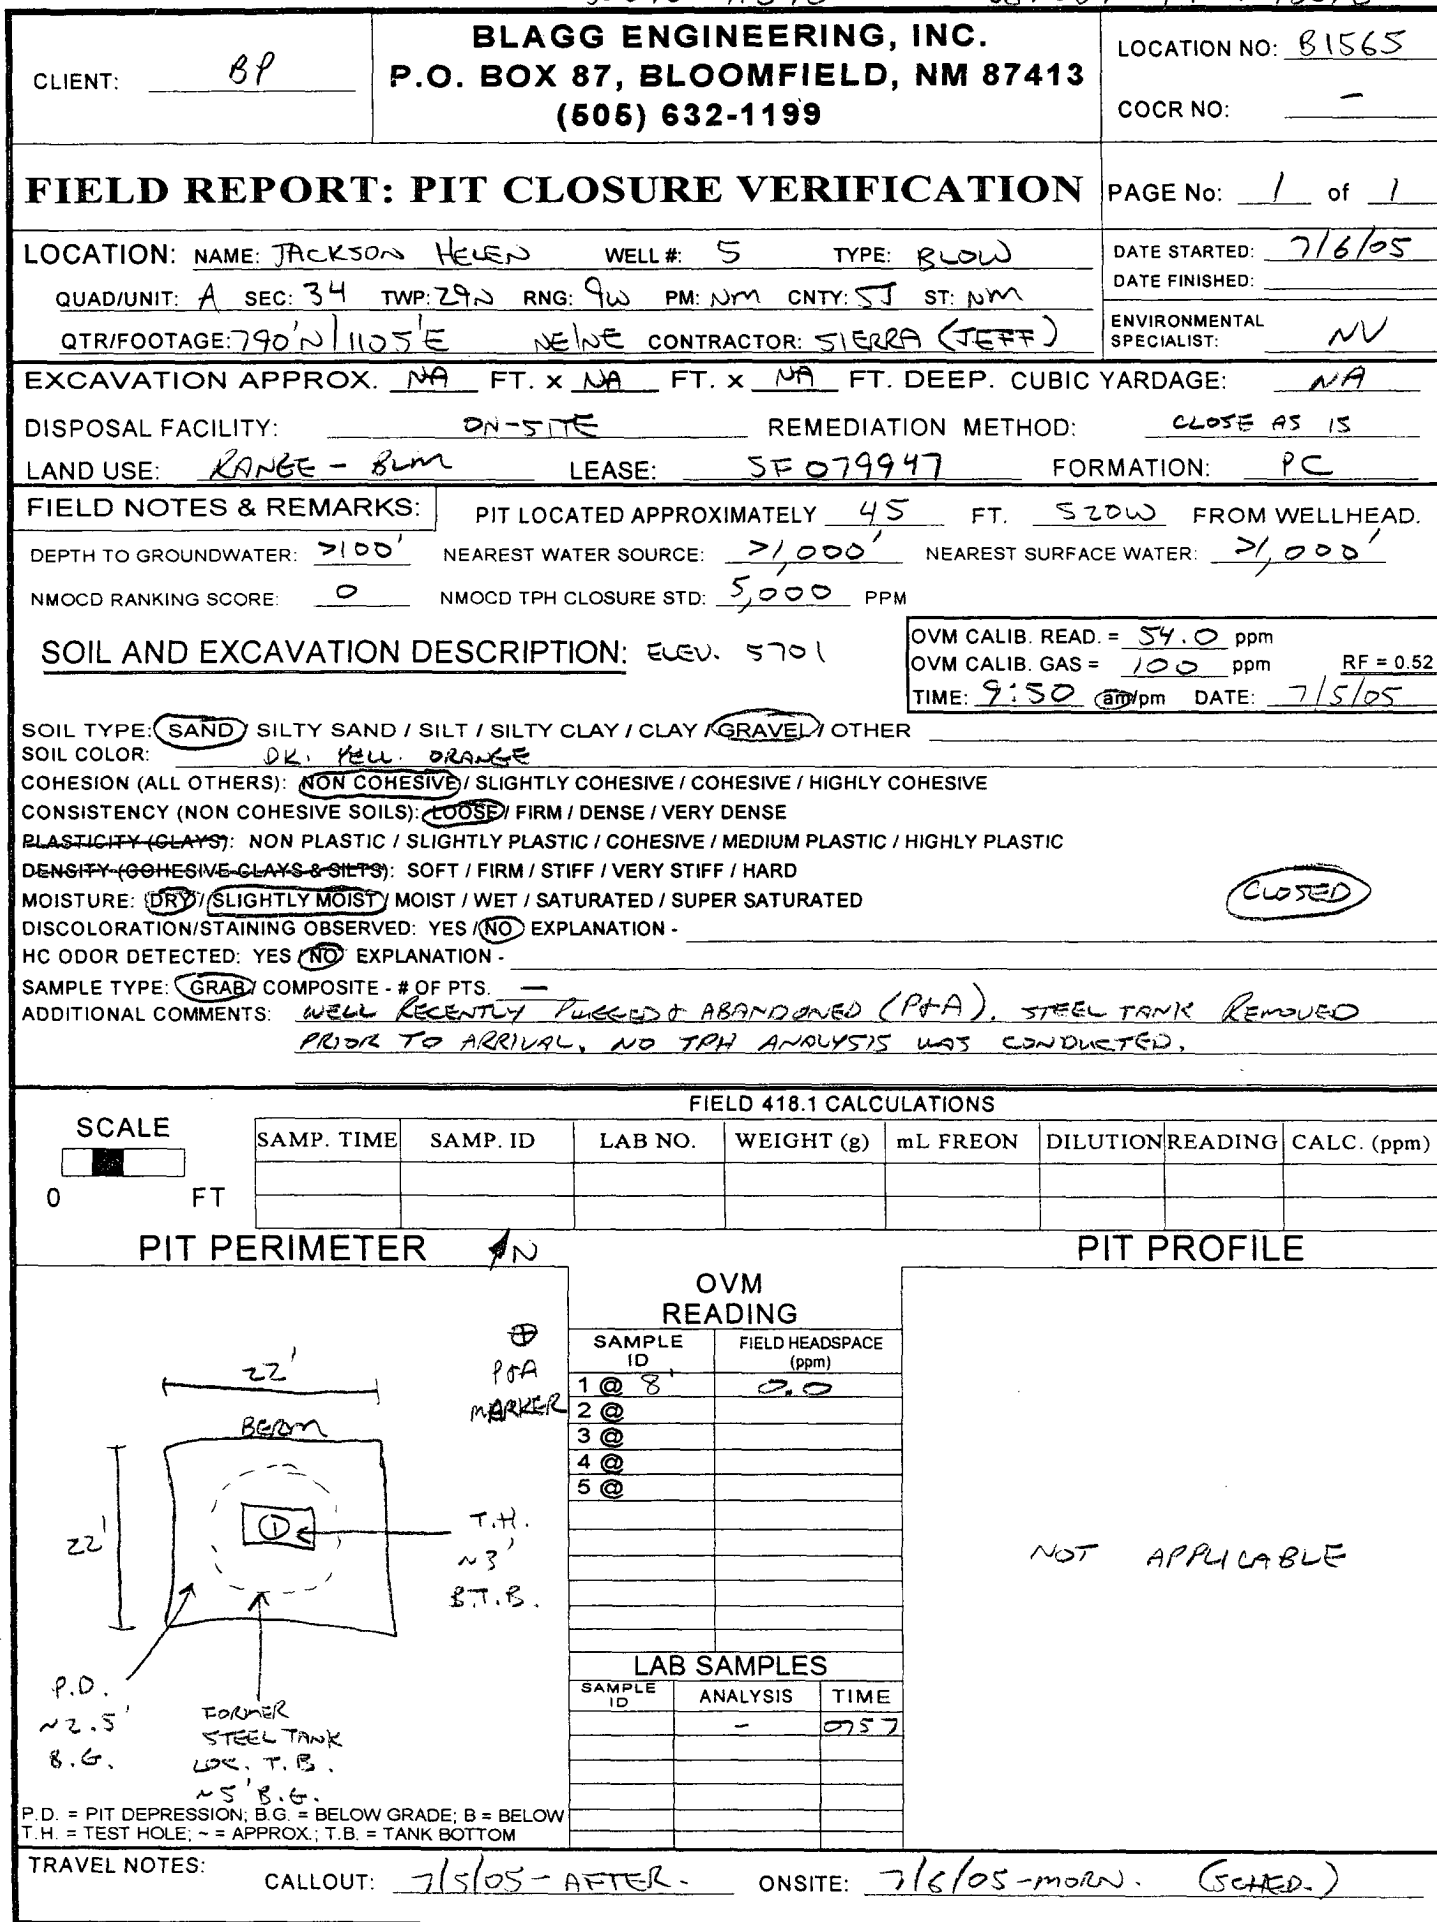 BLAGG ENGINEERING, INC.
P.O. BOX 87, BLOOMFIELD, NM 87413
(505) 632-1199
CLIENT: BP
LOCATION NO: B1565
COCR NO: -
FIELD REPORT: PIT CLOSURE VERIFICATION
PAGE No: 1 of 1
LOCATION: NAME: JACKSON HELEN WELL #: 5 TYPE: BLOW
QUAD/UNIT: A SEC: 34 TWP: 29N RNG: 9W PM: NM CNTY: SJ ST: NM
QTR/FOOTAGE: 790'N/1105'E NE/NE CONTRACTOR: SIERRA (JEFF)
DATE STARTED: 7/6/05
DATE FINISHED:
ENVIRONMENTAL SPECIALIST: NV
EXCAVATION APPROX. NA FT. x NA FT. x NA FT. DEEP. CUBIC YARDAGE: NA
DISPOSAL FACILITY: ON-SITE REMEDIATION METHOD: CLOSE AS IS
LAND USE: RANGE - BLM LEASE: SF 079947 FORMATION: PC
FIELD NOTES & REMARKS: PIT LOCATED APPROXIMATELY 45 FT. S20W FROM WELLHEAD.
DEPTH TO GROUNDWATER: >100' NEAREST WATER SOURCE: >1,000' NEAREST SURFACE WATER: >1,000'
NMOCD RANKING SCORE: 0 NMOCD TPH CLOSURE STD: 5,000 PPM
SOIL AND EXCAVATION DESCRIPTION: ELEV. 5701
OVM CALIB. READ. = 54.0 ppm
OVM CALIB. GAS = 100 ppm RF = 0.52
TIME: 9:50 am/pm DATE: 7/5/05
SOIL TYPE: SAND / SILTY SAND / SILT / SILTY CLAY / CLAY / GRAVEL / OTHER
SOIL COLOR: DK. YELL. ORANGE
COHESION (ALL OTHERS): NON COHESIVE / SLIGHTLY COHESIVE / COHESIVE / HIGHLY COHESIVE
CONSISTENCY (NON COHESIVE SOILS): LOOSE / FIRM / DENSE / VERY DENSE
PLASTICITY (CLAYS): NON PLASTIC / SLIGHTLY PLASTIC / COHESIVE / MEDIUM PLASTIC / HIGHLY PLASTIC
DENSITY (COHESIVE CLAYS & SILTS): SOFT / FIRM / STIFF / VERY STIFF / HARD
MOISTURE: DRY / SLIGHTLY MOIST / MOIST / WET / SATURATED / SUPER SATURATED
CLOSED
DISCOLORATION/STAINING OBSERVED: YES / NO EXPLANATION -
HC ODOR DETECTED: YES / NO EXPLANATION -
SAMPLE TYPE: GRAB / COMPOSITE - # OF PTS. —
ADDITIONAL COMMENTS: WELL RECENTLY PLUGGED & ABANDONED (P&A). STEEL TANK REMOVED
PRIOR TO ARRIVAL. NO TPH ANALYSIS WAS CONDUCTED.
FIELD 418.1 CALCULATIONS
SCALE
0 FT
SAMP. TIME SAMP. ID LAB NO. WEIGHT (g) mL FREON DILUTION READING CALC. (ppm)
PIT PERIMETER N
PIT PROFILE
OVM
READING
SAMPLE ID FIELD HEADSPACE (ppm)
1 @ 8' 0.0
2 @
3 @
4 @
5 @
P&A
MARKER
22'
BERM
22'
1
T.H.
~3'
B.T.B.
P.D.
~2.5'
B.G.
FORMER
STEEL TANK
LOC. T.B.
~5' B.G.
NOT APPLICABLE
LAB SAMPLES
SAMPLE ID ANALYSIS TIME
- 0757
P.D. = PIT DEPRESSION; B.G. = BELOW GRADE; B = BELOW
T.H. = TEST HOLE; ~ = APPROX.; T.B. = TANK BOTTOM
TRAVEL NOTES: CALLOUT: 7/5/05 - AFTER. ONSITE: 7/6/05 - MORN. (SCHED.)